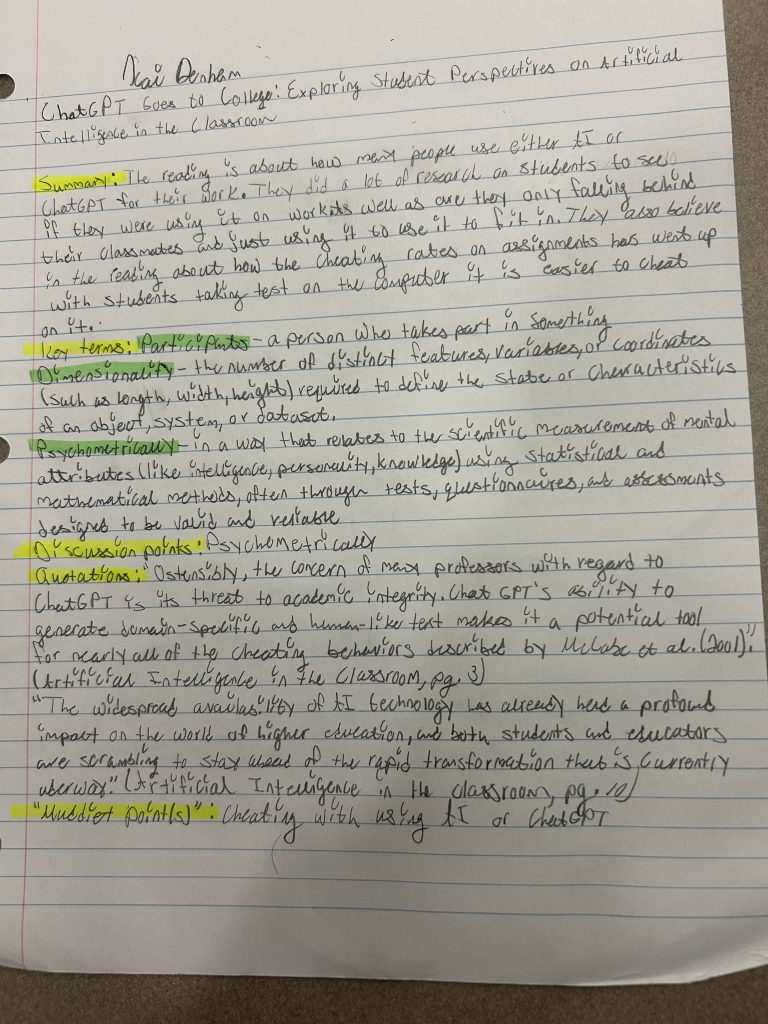 Kai Denham
ChatGPT Goes to College: Exploring Student Perspectives on Artificial
Intelligence in the Classroom
Summary: The reading is about how many people use either AI or
ChatGPT for their work. They did a lot of research on students to see
if they were using it on work as well as are they only falling behind
their classmates and just using it to use it to fit in. They also believe
in the reading about how the cheating rates on assignments has went up
with students taking test on the computer it is easier to cheat
on it.
Key terms: Participants - a person who takes part in something
Dimensionality - the number of distinct features, variables, or coordinates
(such as length, width, height) required to define the state or characteristics
of an object, system, or dataset.
Psychometrically - in a way that relates to the scientific measurement of mental
attributes (like intelligence, personality, knowledge) using statistical and
mathematical methods, often through tests, questionnaires, and assessments
designed to be valid and reliable
Discussion points: Psychometrically
Quotations: "Ostensibly, the concern of many professors with regard to
ChatGPT is its threat to academic integrity. Chat GPT's ability to
generate domain-specific and human-like text makes it a potential tool
for nearly all of the cheating behaviors described by McCabe et al. (2001)."
(Artificial Intelligence in the Classroom, pg. 3)
"The widespread availability of AI technology has already had a profound
impact on the world of higher education, and both students and educators
are scrambling to stay ahead of the rapid transformation that is currently
underway" (Artificial Intelligence in the Classroom, pg. 10)
"Muddiet point(s)": Cheating with using AI or ChatGPT